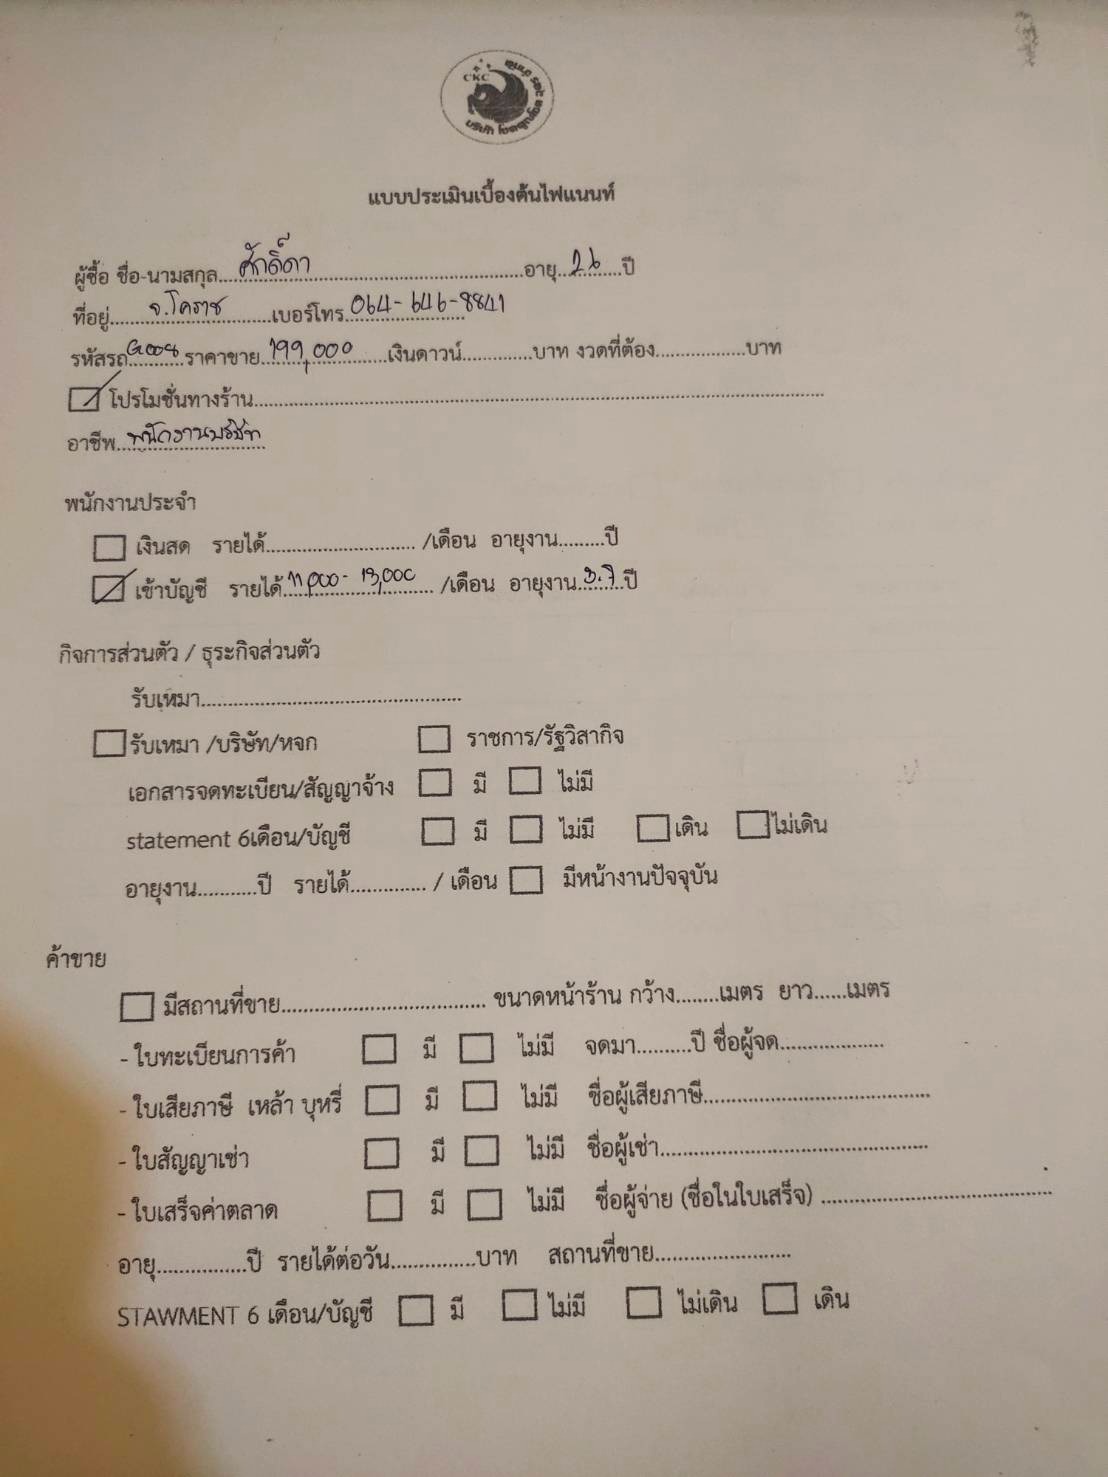 CKC
แบบประเมินเบื้องต้นไฟแนนท์
ผู้ซื้อ ชื่อ-นามสกุล....ศักดิ์ดา....อายุ..26..ปี
ที่อยู่....จ.โคราช....เบอร์โทร.064-646-8841
รหัสรถ.G008.ราคาขาย.199,000....เงินดาวน์.............บาท งวดที่ต้อง................บาท
โปรโมชั่นทางร้าน....................
อาชีพ..พนักงานบริษัท
พนักงานประจำ
เงินสด รายได้........................... /เดือน อายุงาน.........ปี
เข้าบัญชี รายได้.11,000- 13,000.... /เดือน อายุงาน.3.7.ปี
กิจการส่วนตัว / ธุระกิจส่วนตัว
รับเหมา...............................................
รับเหมา /บริษัท/หจก ราชการ/รัฐวิสากิจ
เอกสารจดทะเบียน/สัญญาจ้าง มี ไม่มี
statement 6เดือน/บัญชี มี ไม่มี เดิน ไม่เดิน
อายุงาน...........ปี รายได้.............. / เดือน มีหน้างานปัจจุบัน
ค้าขาย
มีสถานที่ขาย..................................... ขนาดหน้าร้าน กว้าง........เมตร ยาว......เมตร
- ใบทะเบียนการค้า มี ไม่มี จดมา..........ปี ชื่อผู้จด...................
- ใบเสียภาษี เหล้า บุหรี่ มี ไม่มี ชื่อผู้เสียภาษี.........................................
- ใบสัญญาเช่า มี ไม่มี ชื่อผู้เช่า................................................
- ใบเสร็จค่าตลาด มี ไม่มี ชื่อผู้จ่าย (ชื่อในใบเสร็จ) .........................................
อายุ................ปี รายได้ต่อวัน...............บาท สถานที่ขาย........................
STAWMENT 6 เดือน/บัญชี มี ไม่มี ไม่เดิน เดิน